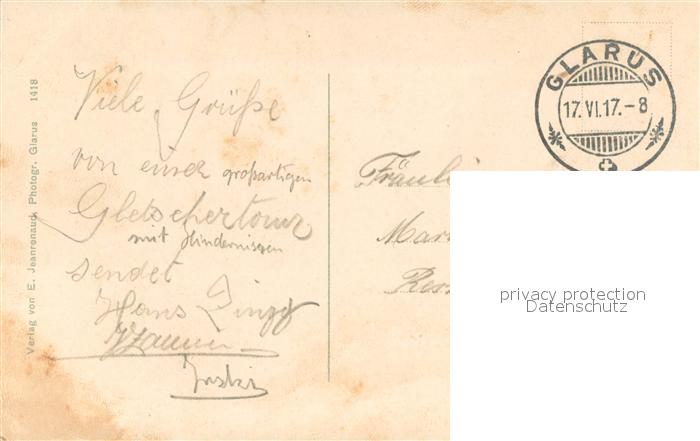 Verlag von E. Jeanrenaud, Photogr. Glarus 1418
Viele Grüße
von einer großartigen
Gletschertour
mit Hindernissen
sendet
Hans Zingg
GLARUS
17.VI.17.-8
Fräulei
Mar
privacy protection
Datenschutz